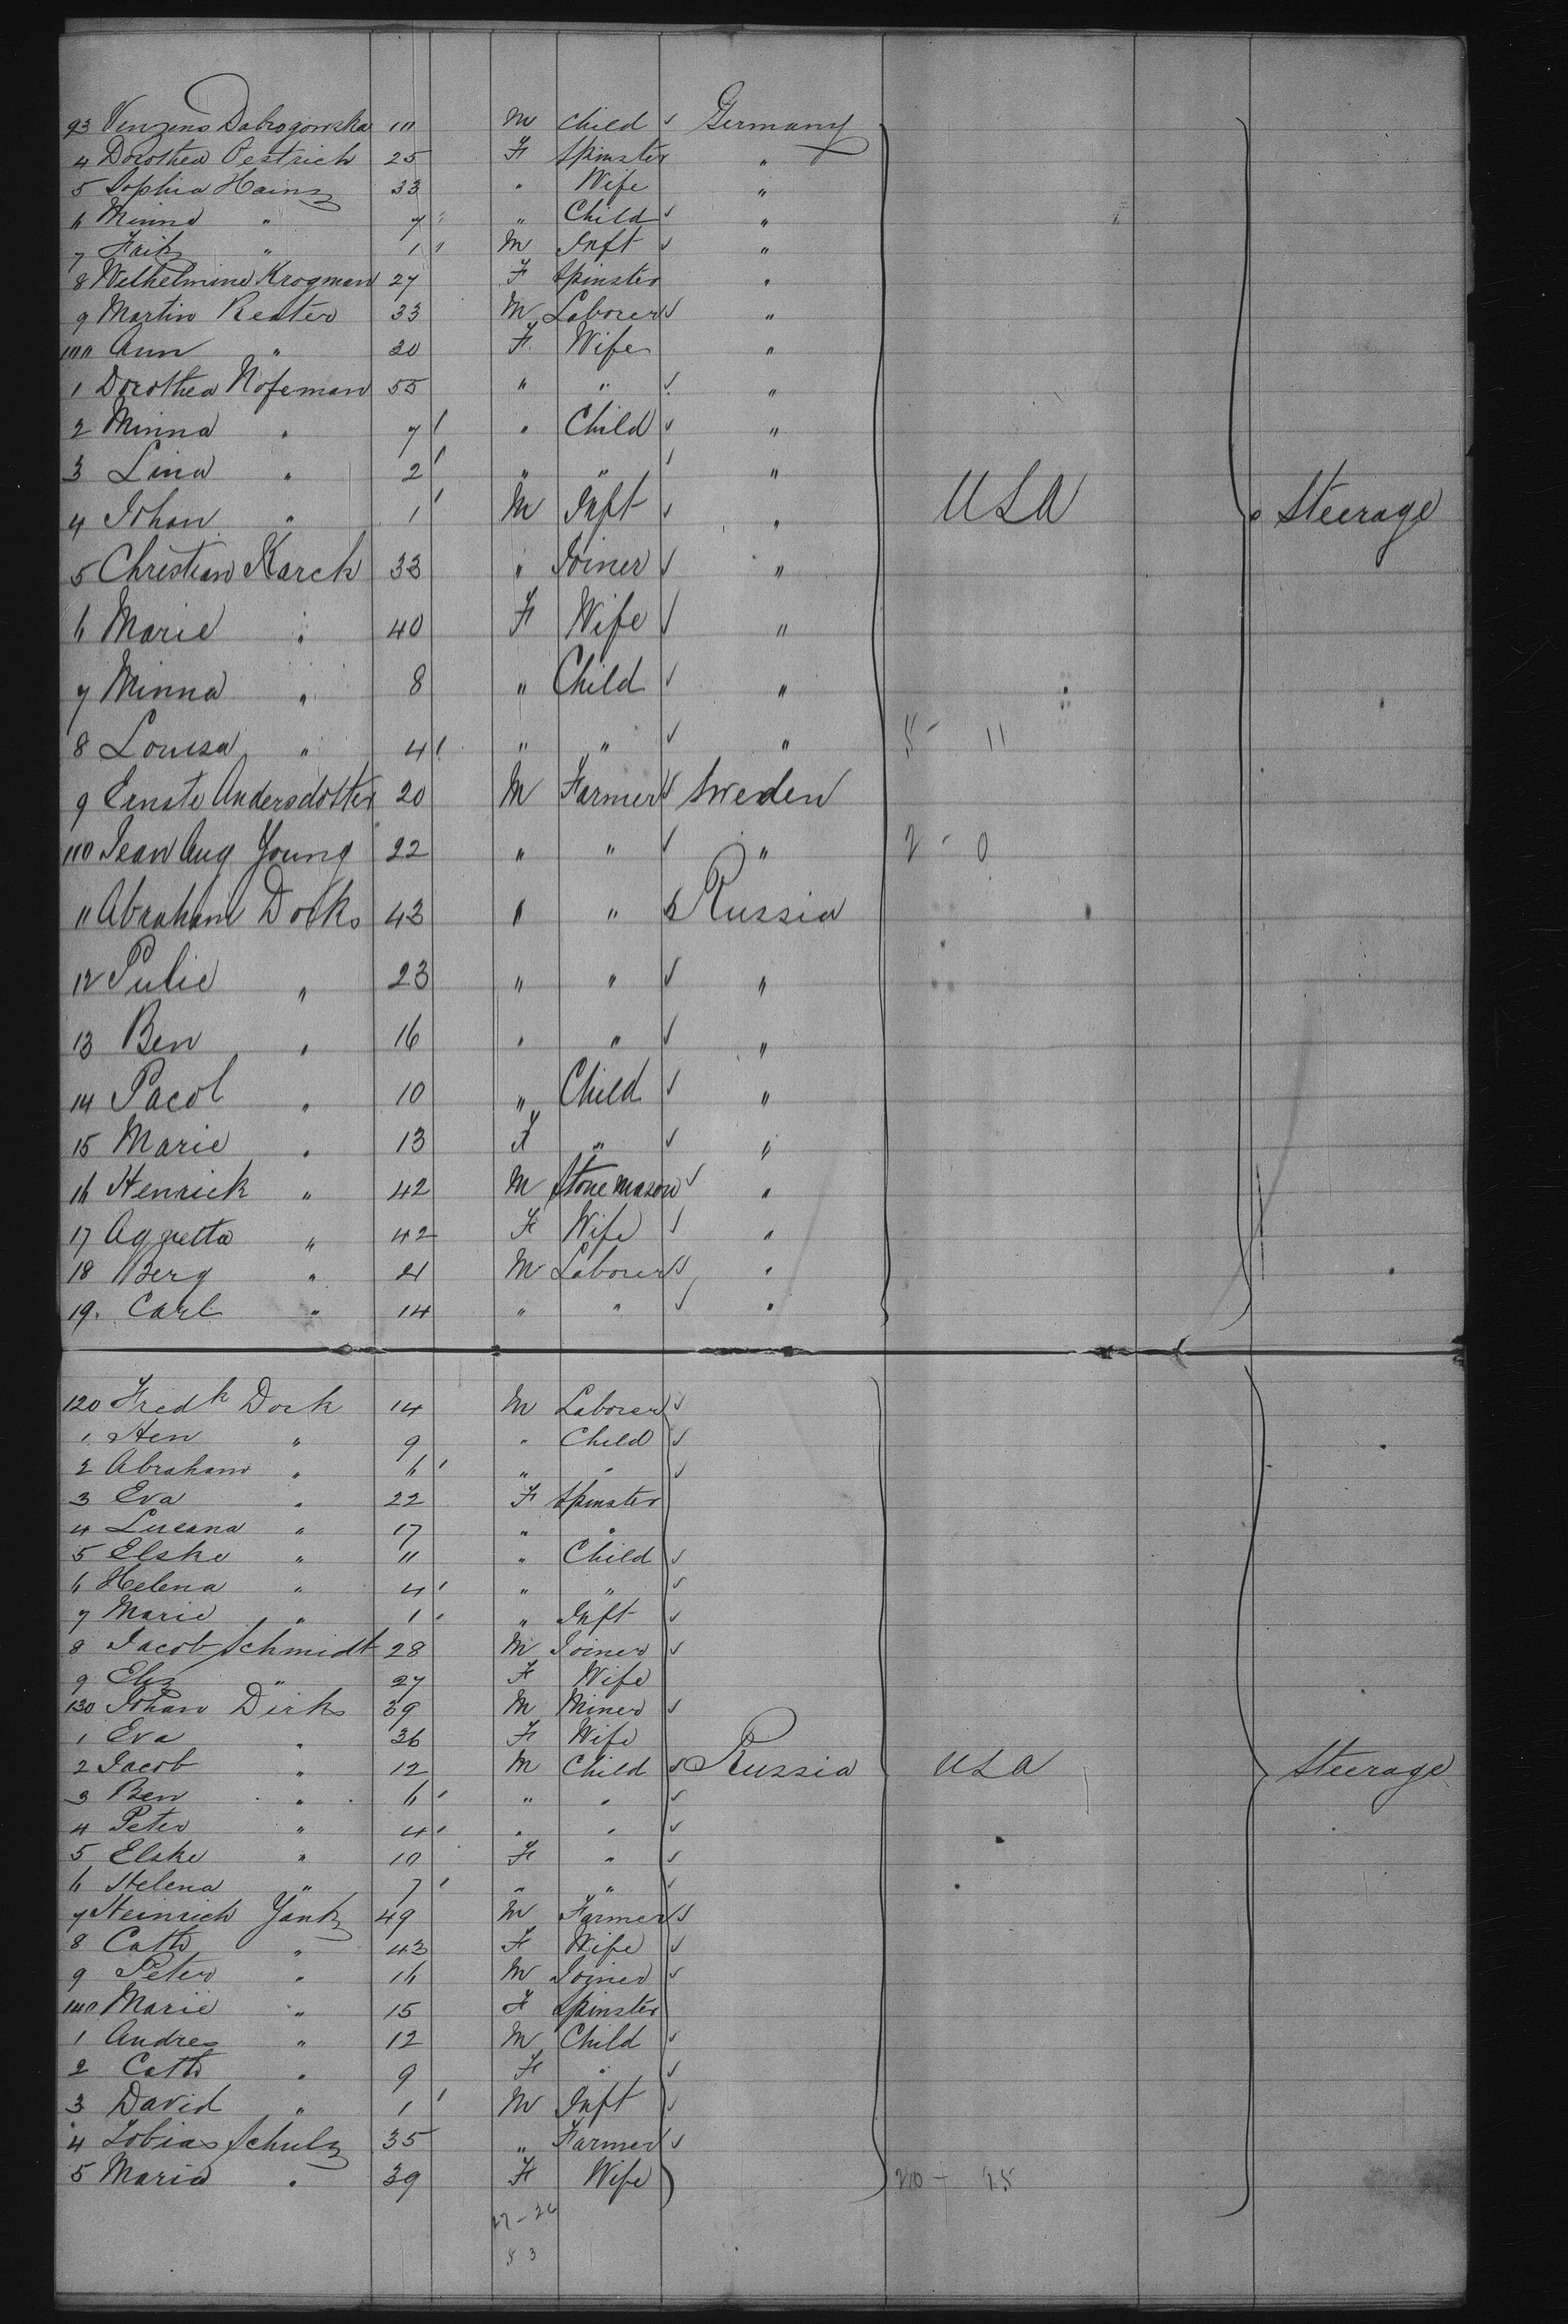 93 Venzens Dabrogowska 10 M Child ✓ Germany
4 Dorothea Oestrich 25 F Spinster "
5 Sophia Hainz 33 " Wife "
6 Minna " 7 " Child ✓ "
7 Fritz " 1 M Inft ✓ "
8 Wilhelmine Krogman 27 F Spinster "
9 Martin Reuter 33 M Laborer ✓ "
100 Ann " 30 F Wife "
1 Dorothea Nofeman 55 " " ✓ "
2 Minna " 7 " Child ✓ "
3 Lina " 2 " " ✓ "
4 Johan " 1 M Inft ✓ " USA Steerage
5 Christian Karch 33 " Joiner ✓ "
6 Marie " 40 F Wife ✓ "
7 Minna " 8 " Child ✓ "
8 Louisa " 4 " " ✓ " 5 - 11
9 Ernste Andersdotter 20 M Farmer ✓ Sweden
110 Jean Aug Young 22 " " ✓ " 2 - 0
11 Abraham Dorks 43 " " ✓ Russia
12 Julie " 23 " " ✓ "
13 Ben " 16 " " ✓ "
14 Jacob " 10 " Child ✓ "
15 Marie " 13 F " ✓ "
16 Henrick " 42 M Stone mason ✓ "
17 Agnetta " 42 F Wife ✓ "
18 Berg " 21 M Laborer ✓ "
19. Carl " 14 " " ✓ "
120 Fredk Dork 14 M Laborer ✓
1 Hen " 9 " Child ✓
2 Abraham " 6 " " ✓
3 Eva " 22 F Spinster
4 Lueana " 17 " "
5 Elske " 11 " Child ✓
6 Helena " 4 " " ✓
7 Marie " 1 " Inft ✓
8 Jacob Schmidt 28 M Joiner ✓
9 Eliz " 27 F Wife
130 Johan Dirks 39 M Miner ✓
1 Eva " 36 F Wife
2 Jacob " 12 M Child ✓ Russia USA Steerage
3 Ben " 6 " " ✓
4 Peter " 4 " " ✓
5 Elske " 10 F " ✓
6 Helena " 7 " " ✓
7 Heinrich Yantz 49 M Farmer ✓
8 Cath " 43 F Wife ✓
9 Peter " 16 M Joiner ✓
140 Marie " 15 F Spinster
1 Andres " 12 M Child ✓
2 Cath " 9 F " ✓
3 David " 1 M Inft ✓
4 Tobias Schulz 35 " Farmer ✓
5 Maria " 39 F Wife
27 - 26
53